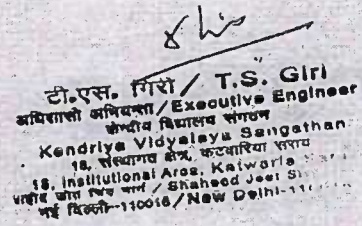 टी.एस. गिरी / T.S. Giri
अधिशासी अभियन्ता / Executive Engineer
केन्द्रीय विद्यालय संगठन
Kendriya Vidyalaya Sangathan
18, संस्थागत क्षेत्र, कटवारिया सराय
18, Institutional Area, Katwaria
शहीद जीत सिंह मार्ग / Shaheed Jeet
नई दिल्ली-110016 / New Delhi-11